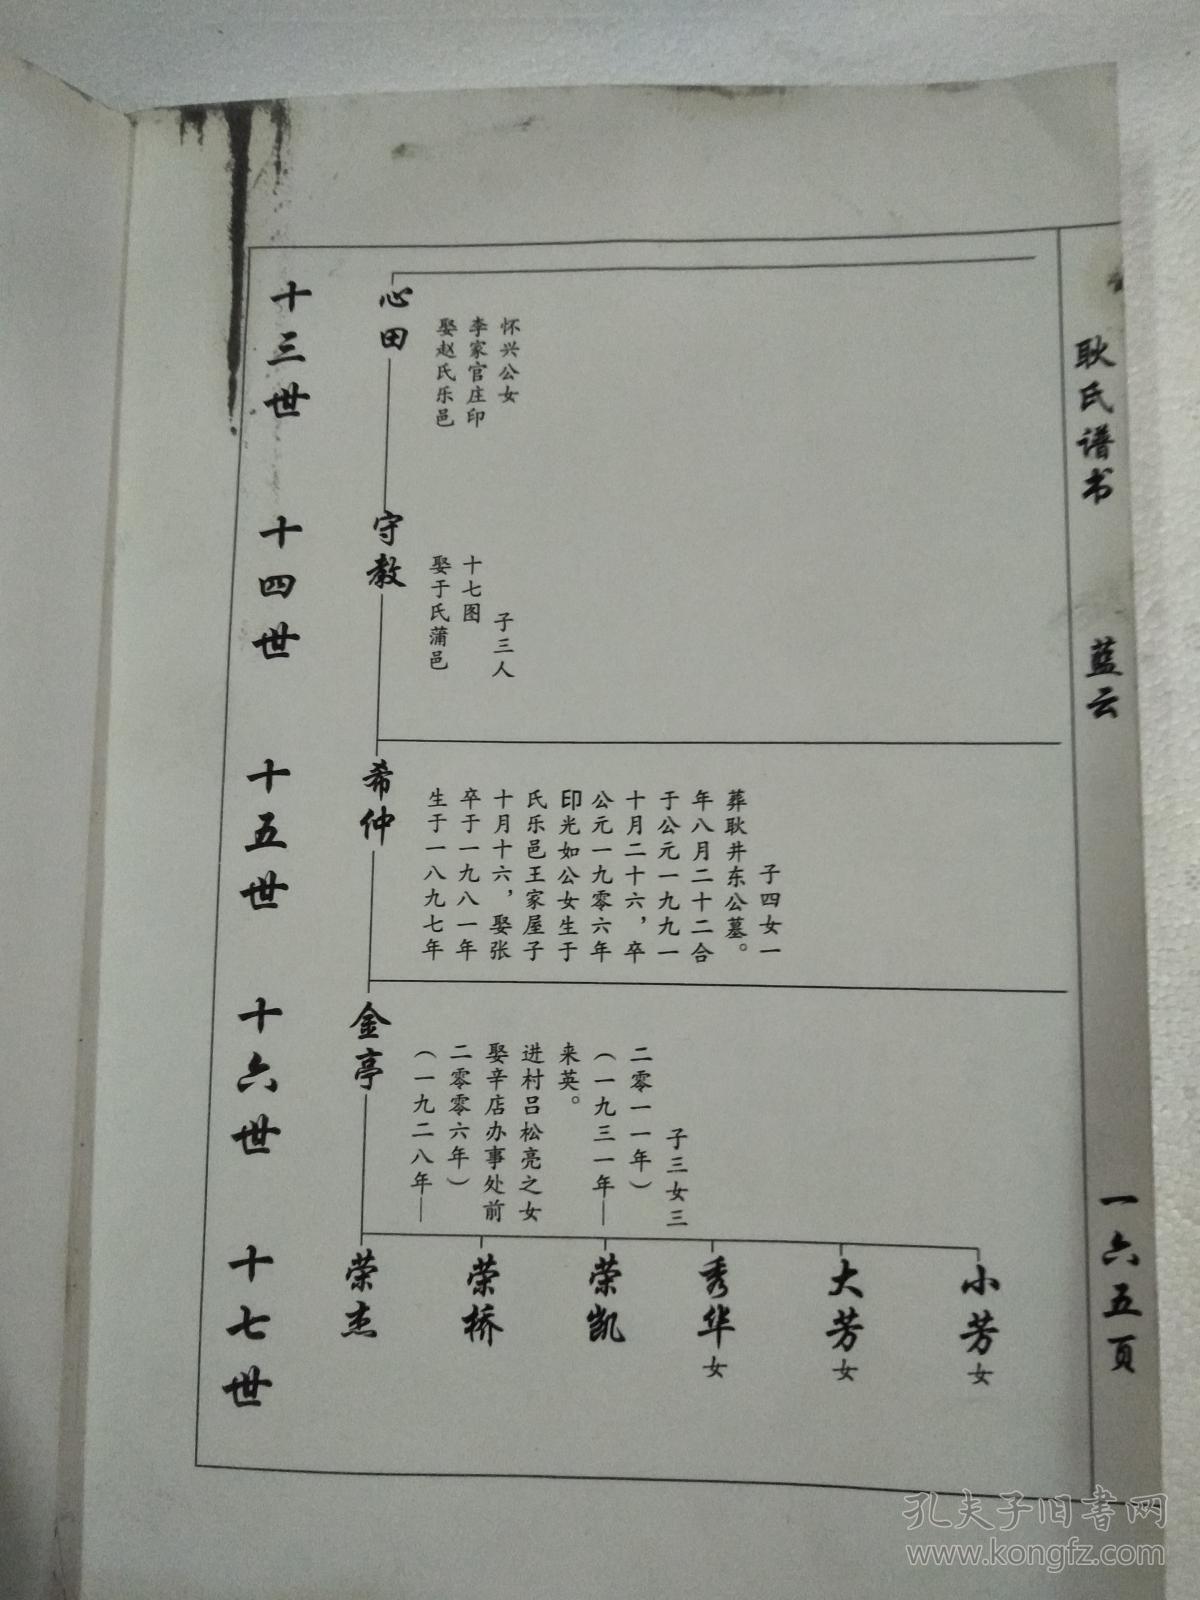 十三世
心田
娶赵氏乐邑
李家官庄印
怀兴公女
十四世
守教
娶于氏蒲邑
十七图
子三人
十五世
希仲
生于一八九七年
卒于一九八一年
十月十六，娶张
氏乐邑王家屋子
印光如公女生于
公元一九零六年
十月二十六，卒
于公元一九九一
年八月二十二合
葬耿井东公墓。
子四女一
十六世
金亭
（一九二八年——
二零零六年）
娶辛店办事处前
进村吕松亮之女
来英。
（一九三一年——
二零一一年）
子三女三
十七世
荣杰
荣桥
荣凯
秀华女
大芳女
小芳女
耿氏谱书
蓝云
一六五頁
孔夫子旧書网
www.kongfz.com